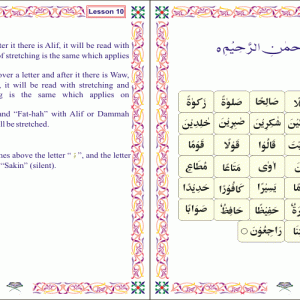 Lesson 10
ter it there is Alif, it will be read with
of stretching is the same which applies
over a letter and after it there is Waw,
, it will be read with stretching and
ng is the same which applies on
and “Fat-hah” with Alif or Dammah
ill be stretched.
mes above the letter “ ”, and the letter
“Sakin” (silent).
حْمٰنِ الرَّحِيْمِ
لَا صَالِحًا صَلٰوةً زَكٰوةً
شٰكِرِيْنَ صٰبِرِيْنَ خٰلِدِيْنَ
قَالُوْا قَوْلًا قَوْمًا
اٰوٰى مَتَاعًا مُطَاعٍ
يَسِيْرًا كَافُوْرًا حَدِيْدًا
حَفِيْظًا حَافِظٌ صَوَابًا
رَاجِعُوْنَ